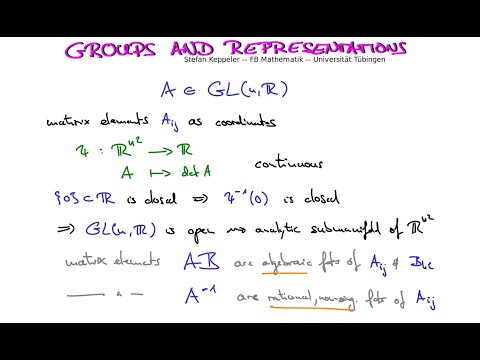 GROUPS AND REPRESENTATIONS
Stefan Keppeler -- FB Mathematik -- Universität Tübingen
A ∈ GL(n,ℝ)
matrix elements A_ij as coordinates
Ψ : ℝ^n² → ℝ
A ↦ det A
continuous
{0} ⊂ ℝ is closed ⇒ Ψ⁻¹(0) is closed
⇒ GL(n,ℝ) is open ⇝ analytic submanifold of ℝ^n²
matrix elements AB are algebraic fcts of A_ij & B_kl
—— " — A⁻¹ are rational, non-sing. fcts of A_ij